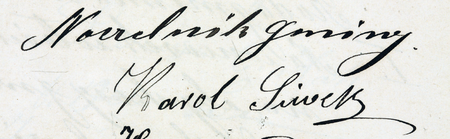 Naczelnik gminy.
Karol Siwek